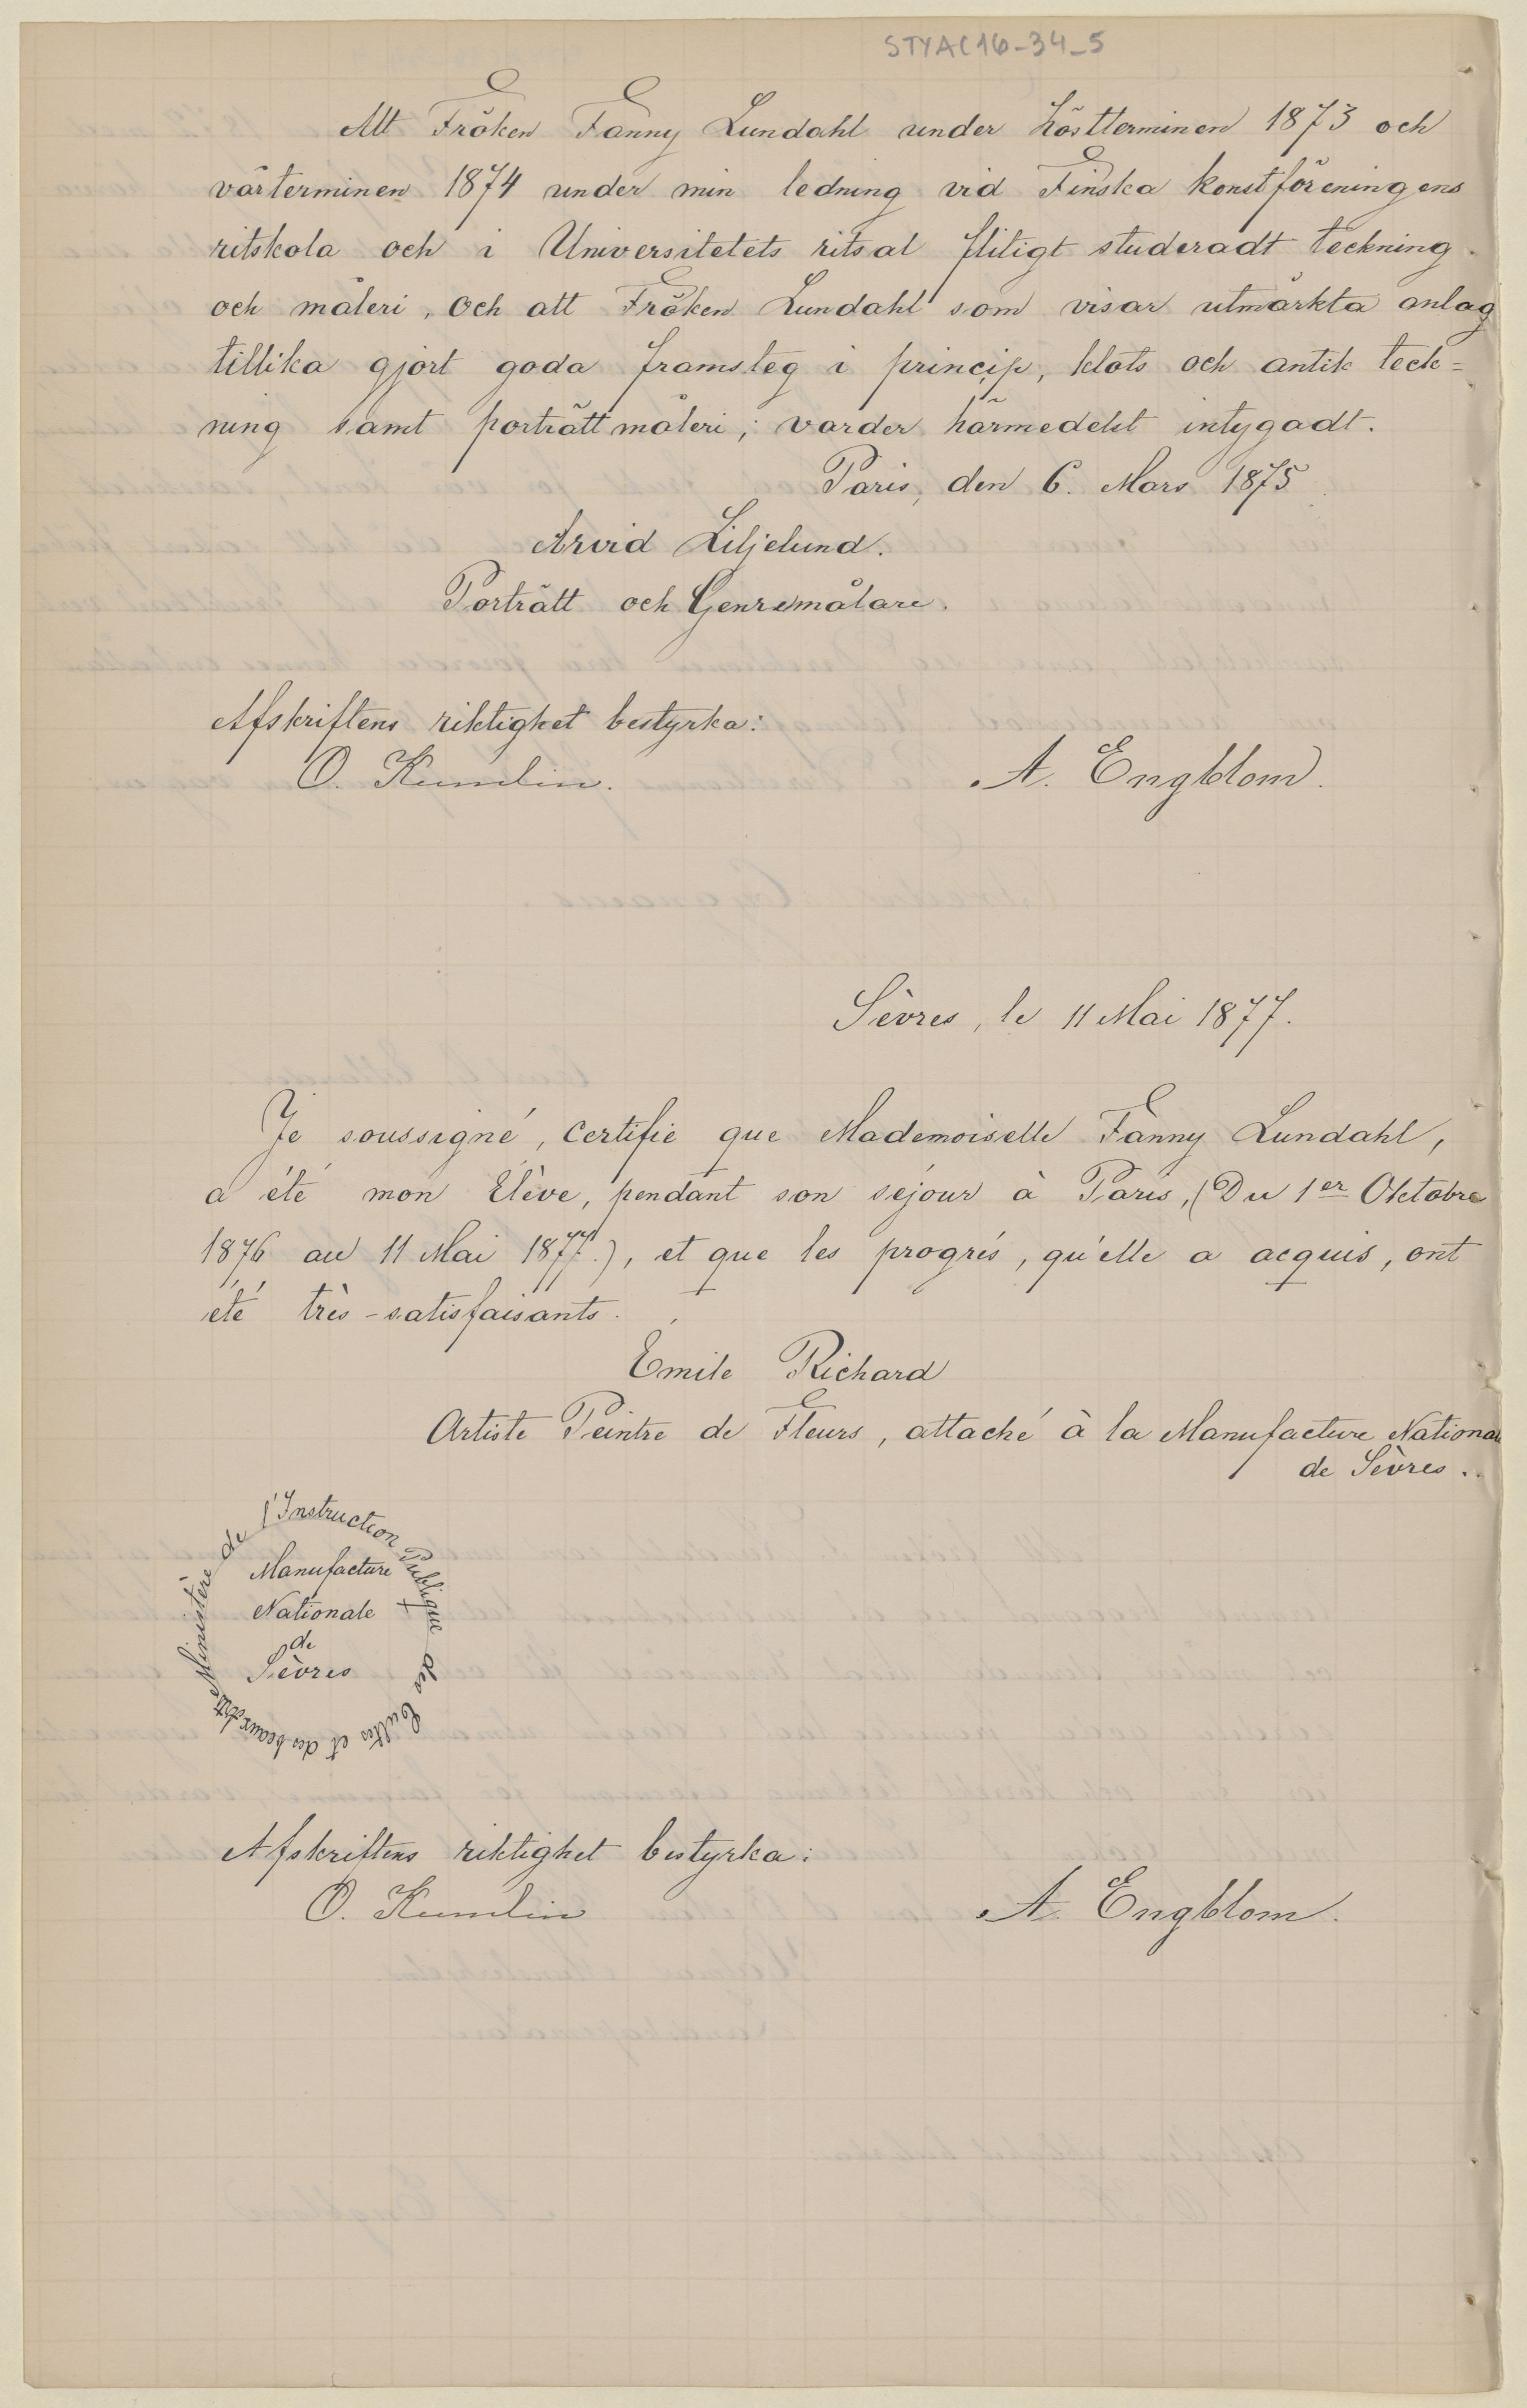 STYAC16-34-5
Att Fröken Fanny Lundahl under höstterminen 1873 och
vårterminen 1874 under min ledning vid Finska konstföreningens
ritskola och i Universitetets ritsal flitigt studeradt teckning
och måleri, och att Fröken Lundahl som visar utmärkta anlag
tillika gjort goda framsteg i princip, klots och antik teck=
ning samt porträttmåleri; varder härmedelst intygadt.
Paris, den 6. Mars 1875
Arvid Liljelund.
Porträtt och Genremålare.
Afskriftens riktighet bestyrka:
O. Kumlin. A. Engblom.
Sèvres, le 11 Mai 1877.
Je soussigné, certifie que Mademoiselle Fanny Lundahl,
a été mon Elève, pendant son séjour à Paris, (Du 1er Oktobre
1876 au 11 Mai 1877.), et que les progrès, qu'elle a acquis, ont
été très-satisfaisants.
Emile Richard
Artiste Peintre de Fleurs, attaché à la Manufacture Nationale
de Sèvres.
Ministère de l'Instruction Publique des Cultes et des beaux arts
Manufacture
Nationale
de
Sèvres
Afskriftens riktighet bestyrka:
O. Kumlin A. Engblom.